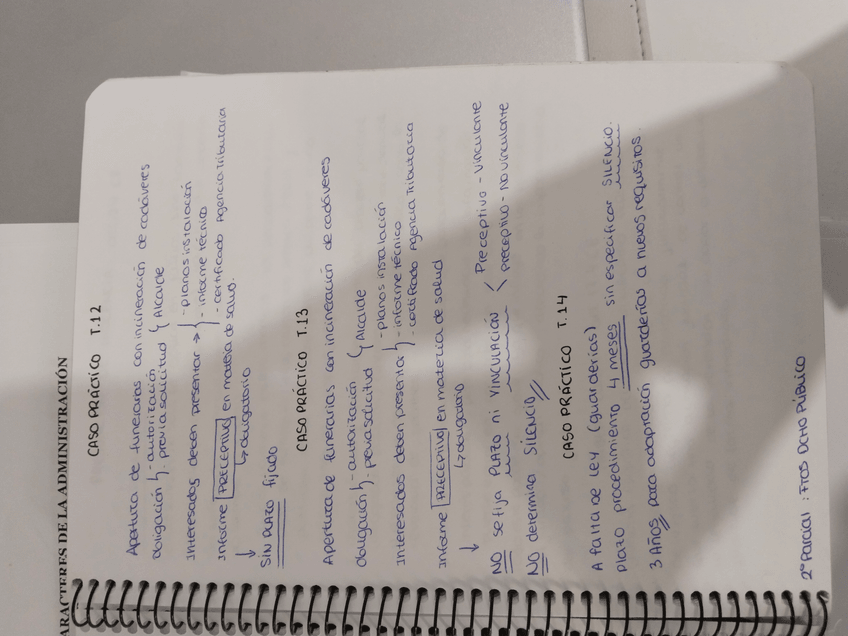 ARACTERES DE LA ADMINISTRACIÓN
CASO PRÁCTICO T.12
Apertura de funerarias con incineración de cadáveres
obligación - autorización
- previa solicitud Alcalde
Interesados deben presentar → - planos instalación
- informe técnico
- certificado Agencia Tributaria
Informe PRECEPTIVO en materia de salud.
↓ ↳ obligatorio
SIN PLAZO fijado
CASO PRÁCTICO T.13
Apertura de funerarias con incineración de cadáveres
obligación - autorización
- previa solicitud Alcalde
Interesados deben presentar - planos instalación
- informe técnico
- certificado Agencia Tributaria
Informe PRECEPTIVO en materia de salud
↓ ↳ obligatorio
NO se fija PLAZO ni VINCULACIÓN < Preceptivo - vinculante
preceptivo - no vinculante
NO determina SILENCIO
CASO PRÁCTICO T.14
A falta de LEY (guarderías)
Plazo procedimiento 4 meses sin especificar SILENCIO.
3 AÑOS para adaptación guarderías a nuevos requisitos.
2º Parcial: FTOS DCHO PÚBLICO